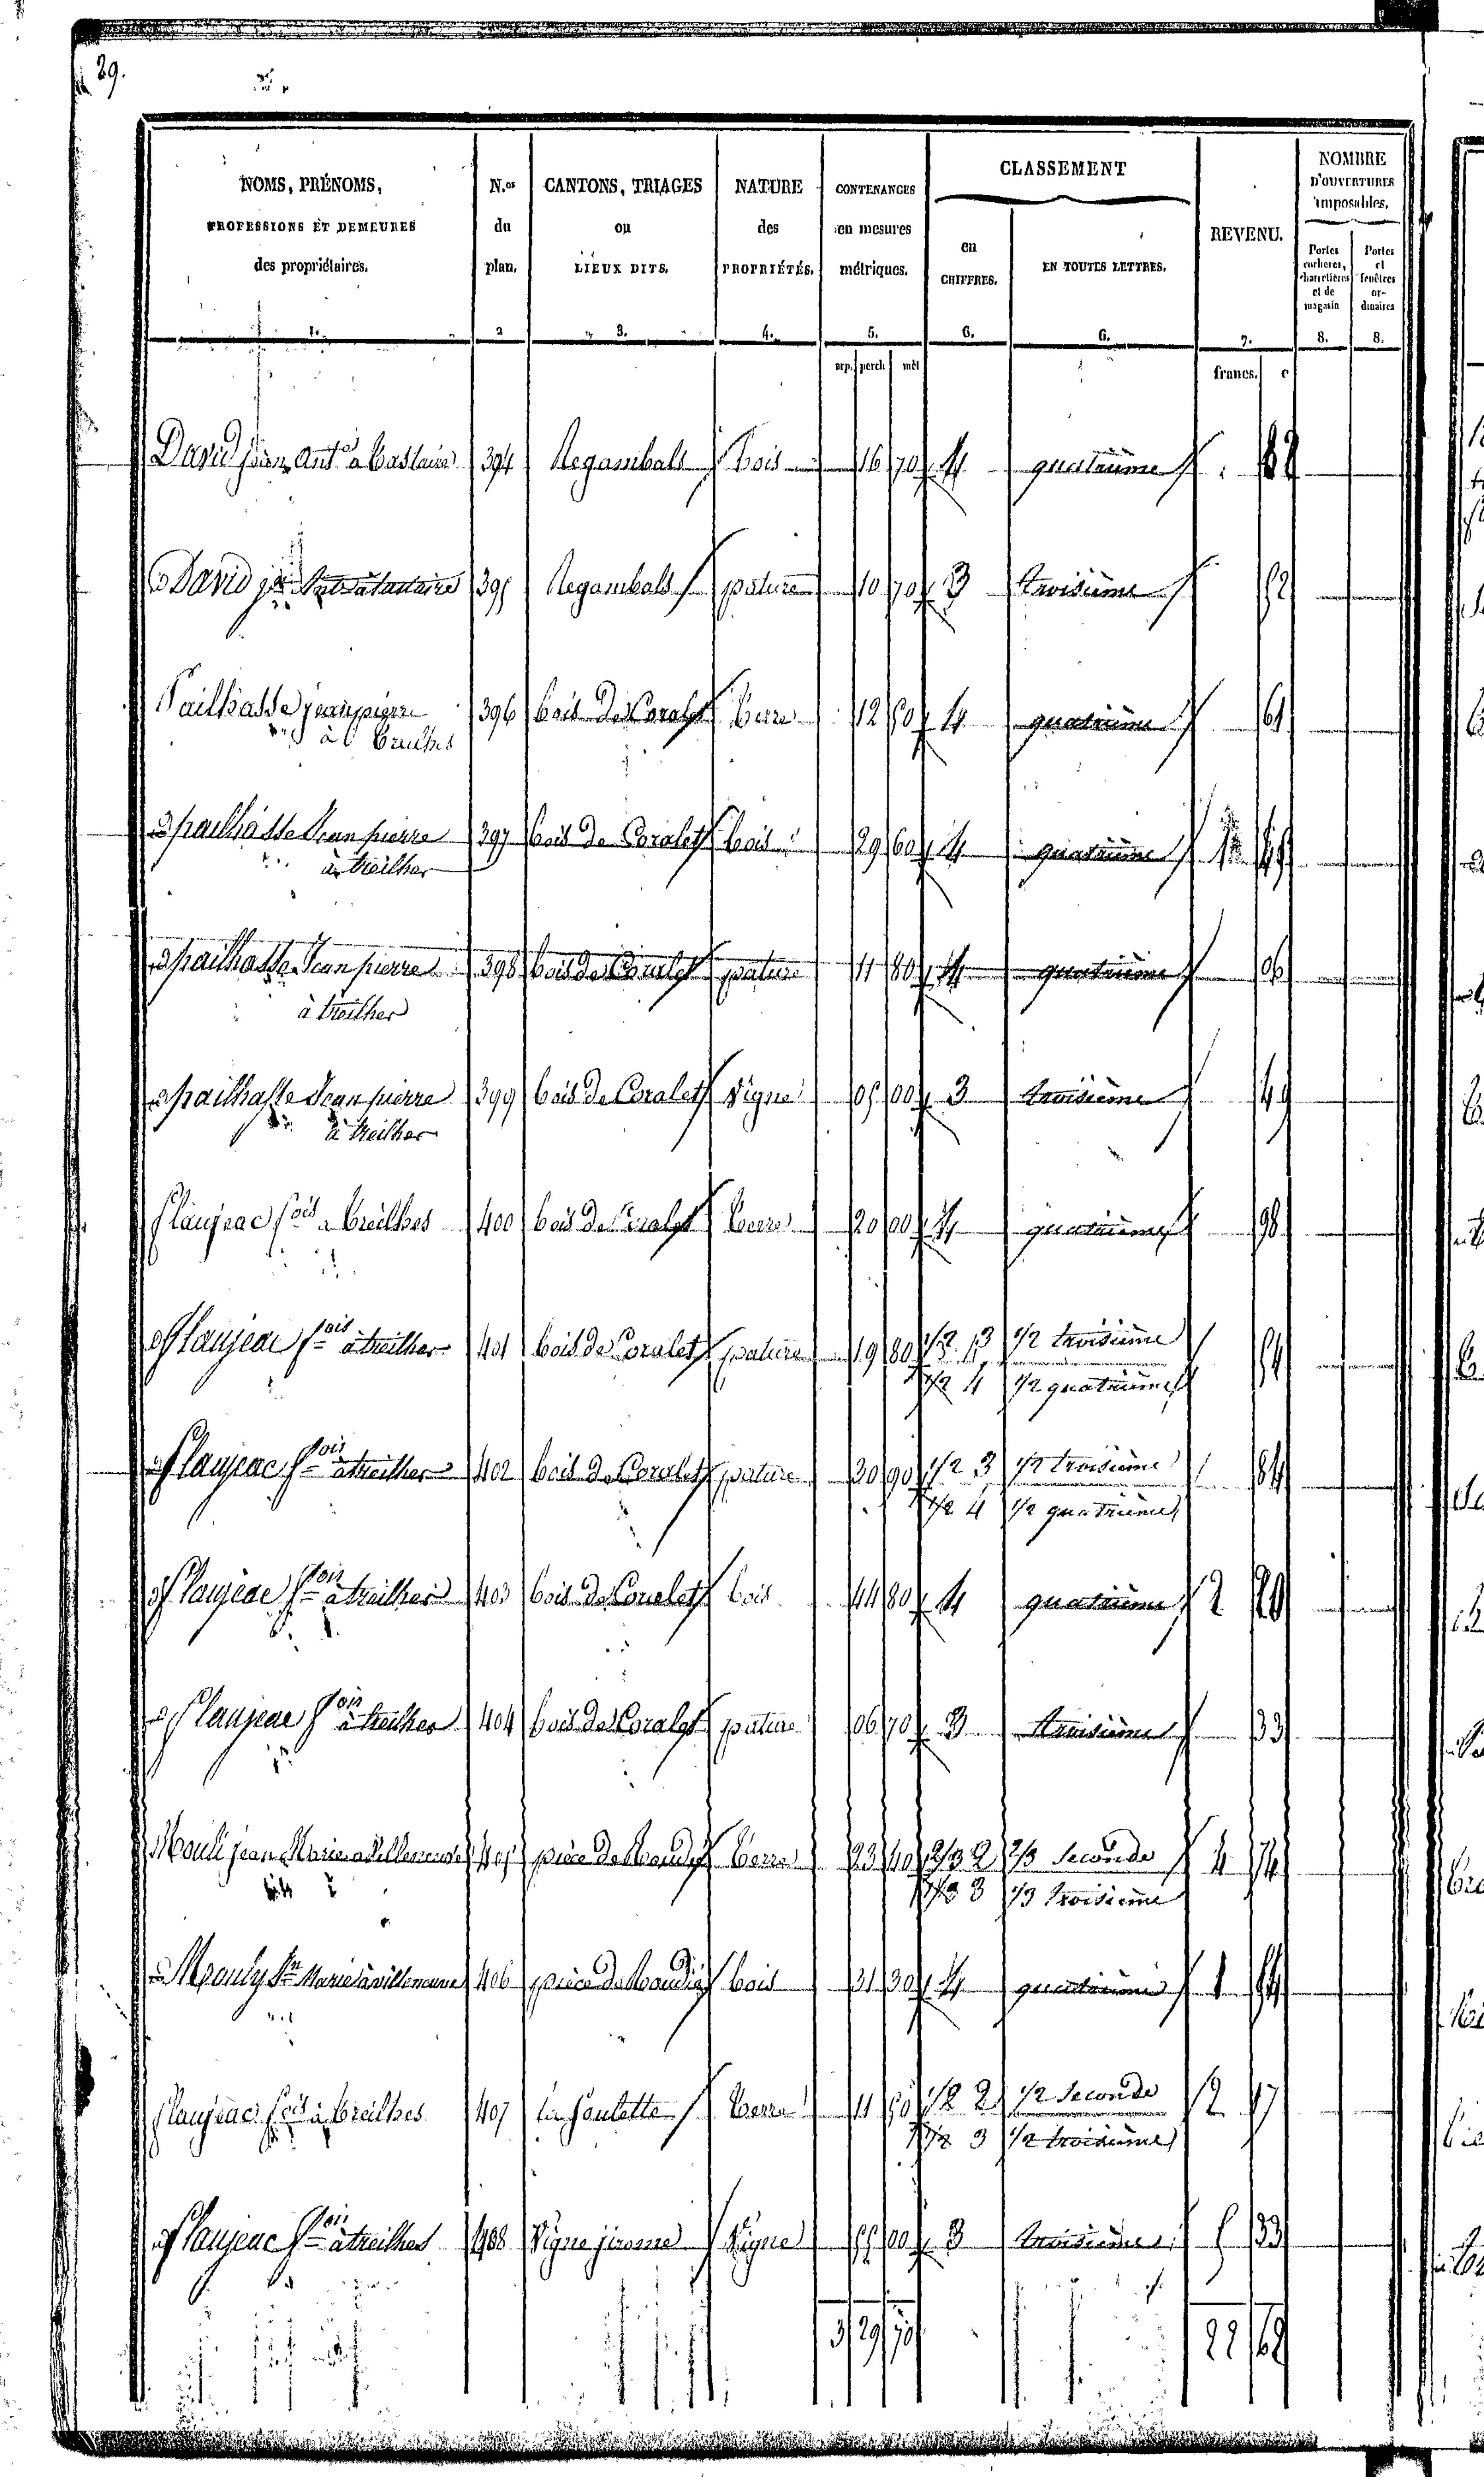 29.
NOMS, PRÉNOMS, PROFESSIONS ET DEMEURES des propriétaires. 1.
N.os du plan. 2
CANTONS, TRIAGES ou LIEUX DITS. 3.
NATURE des PROPRIÉTÉS. 4.
CONTENANCES en mesures métriques. 5.
CLASSEMENT
en CHIFFRES. 6.
EN TOUTES LETTRES. 6.
REVENU. 7.
NOMBRE D'OUVERTURES imposables.
Portes cocheres, charretières et de magasin 8.
Portes et fenêtres ordinaires 8.
arp. perch mèt francs. c
David jean Ant.e a 394 Regambals bois 16 70 4 quatrième
David 395 Regambals pature 10 70 3 troisième 52
Pailhasse jean pierre 396 bois De Coralet terre 12 50 4 quatrième 61
à treilhes
pailhasse Jean pierre 397 bois de Coralet bois 29 60 4 quatrième 1 45
à treilhes
pailhasse Jean pierre 398 bois de Coralet pature 11 80 4 quatrième 06
à treilhes
pailhasse Jean pierre 399 bois de Coralet Vigne 05 00 3 troisième 49
à treilhes
flaujeac f.ois a treilhes 400 bois de Coralet terre 20 00 4 quatrième 98
flaujeac f.ois à treilhes 401 bois de Coralet pature 19 80 1/2 3 1/2 troisième 54
1/2 4 1/2 quatrième
flaujeac f.ois à treilhes 402 bois de Coralet pature 30 90 1/2 3 1/2 troisième 84
1/2 4 1/2 quatrième
flaujeac f.ois à treilhes 403 bois de Coralet bois 44 80 4 quatrième 2 20
flaujeac f.ois à treilhes 404 bois de Coralet pature 06 70 3 troisième 33
Mouli jean Marie a Villeneuve 405 pièce de terre 23 40 2/3 2 2/3 Seconde 4 74
1/3 3 1/3 troisième
Mouly Jn Marie à villeneuve 406 pièce de bois 31 30 4 quatrième 1 54
flaujeac f.ois à treilhes 407 la Goulette terre 11 50 1/2 2 1/2 Seconde 2 17
1/2 3 1/2 troisième
flaujeac f.ois à treilhes 408 Vigne jirome Vigne 55 00 3 troisième 5 33
3 29 70 22 62